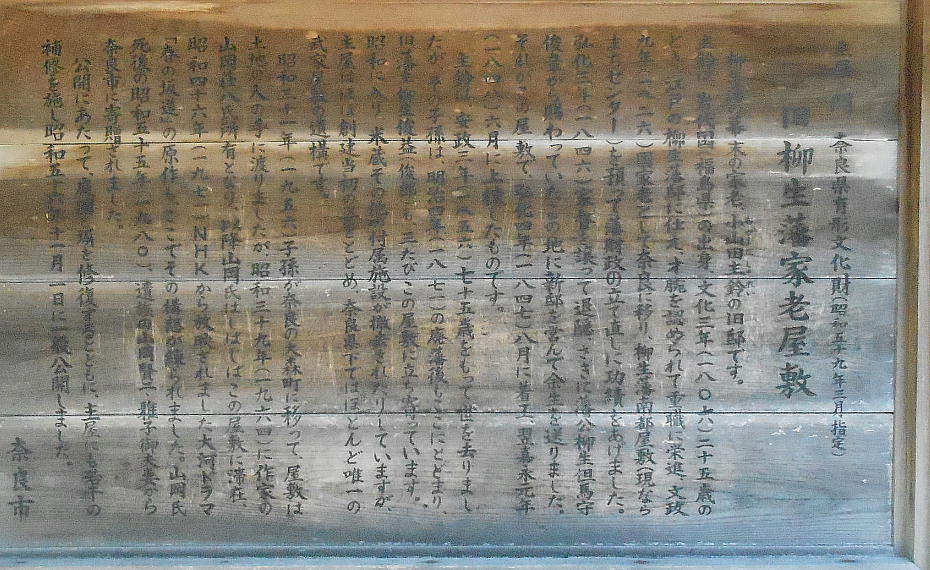 主屋 門
奈良県有形文化財(昭和五十九年三月指定)
旧柳生藩家老屋敷
柳生藩幕末の家老、小山田主鈴の旧邸です。
主鈴は、岩代国(福島県)の出身、文化三年(一八〇六)二十五歳の
とき、江戸の柳生藩邸に仕え、才腕を認められて重職に栄進、文政
九年(一八二六)国家老として奈良に移り、柳生藩南都屋敷(現なら
まちセンター)を預って藩財政の立て直しに功績をあげました。
弘化三年(一八四六)家督を譲って退隠、さきに藩公柳生但馬守
俊章から賜わっていたこの地に新邸を営んで余生を送りました。
それがこの屋敷で、弘化四年(一八四七)八月に着工、翌嘉永元年
(一八四八)六月に上棟したものです。
主鈴は、安政三年(一八五六)七十五歳をもって世を去りまし
たが、その子孫は、明治四年(一八七一)の廃藩後もここにとどまり、
旧藩主柳生俊益(俊郎)も、三たびこの屋敷に立ち寄っています。
昭和に入り、米蔵その他の付属施設が撤去されたりしていますが、
主屋はほぼ創建当初の姿をとどめ、奈良県下ではほとんど唯一の
武家屋敷の遺構です。
昭和三十一年(一九五六)子孫が奈良の大森町に移って、屋敷は
土地の人の手に渡りましたが、昭和三十九年(一九六四)に作家の
山岡荘八氏所有となり、以降山岡氏はしばしばこの屋敷に滞在、
昭和四十六年(一九七一)NHKから放映されました大河ドラマ
「春の坂道」の原作も、ここでその構想が練られました。山岡氏
死後の昭和五十五年(一九八〇)、遺族の山岡賢二、雅子御夫妻から
奈良市に寄贈されました。
公開にあたって、庭園、塀を修復するとともに、主屋にも若干の
補修を施し昭和五十六年十一月一日に一般公開しました。
奈良市